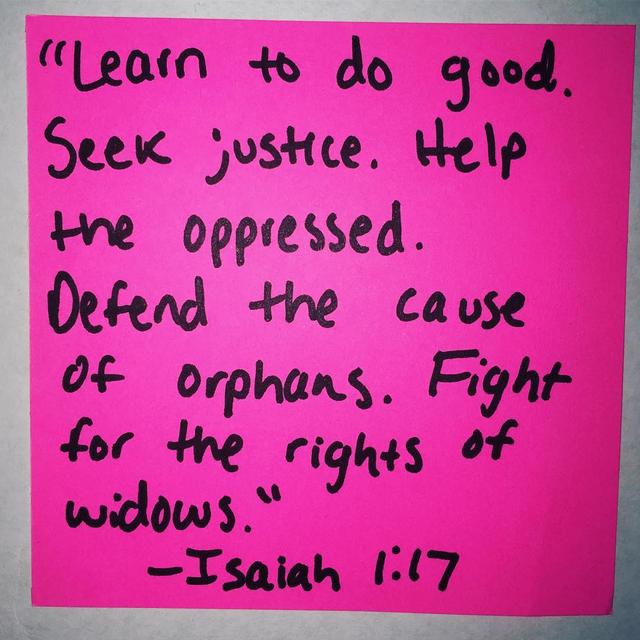 "Learn to do good.
Seek justice. Help
the oppressed.
Defend the cause
of orphans. Fight
for the rights of
widows."
-Isaiah 1:17